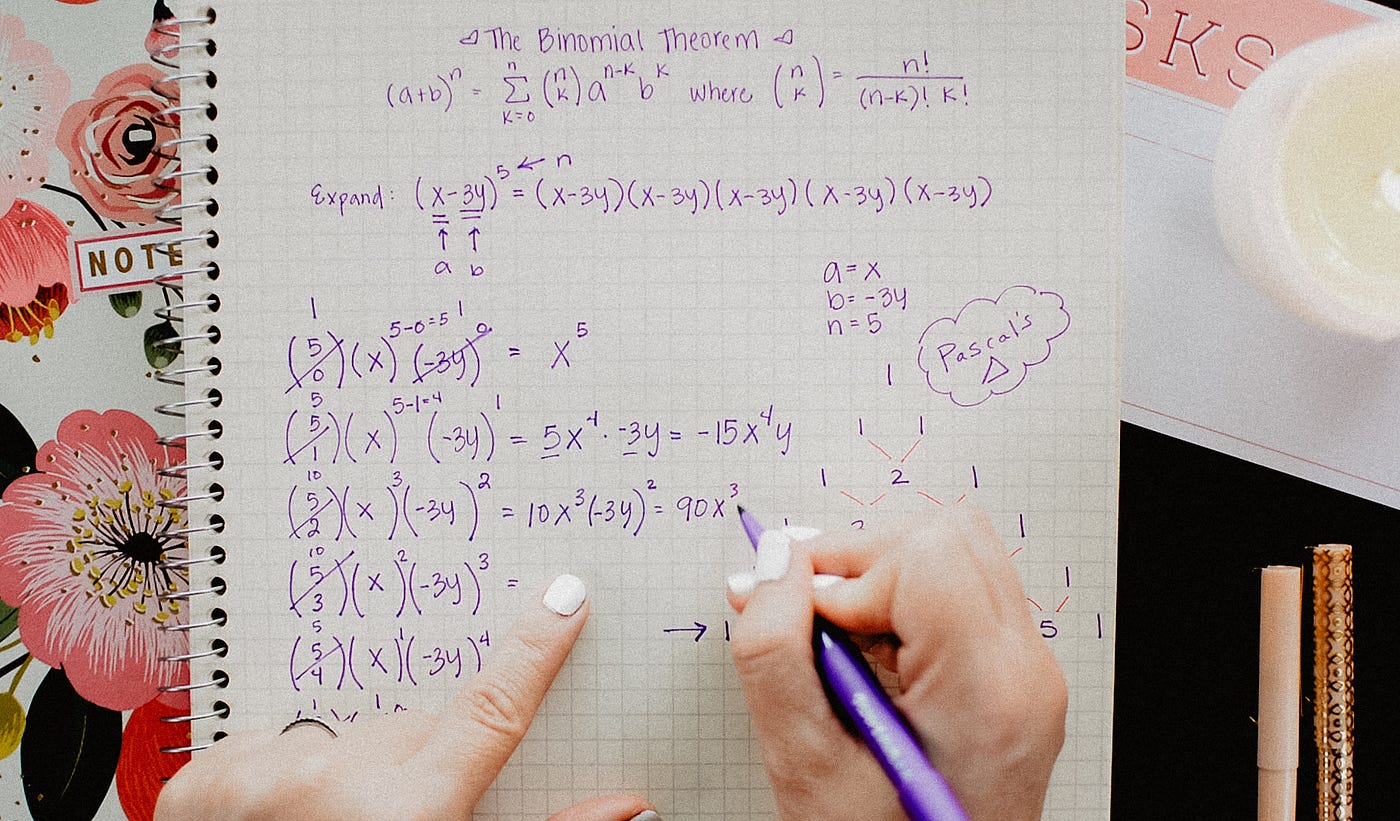 The Binomial Theorem
(a+b)ⁿ = ∑ₖ₌₀ⁿ (n k) aⁿ⁻ᵏ bᵏ where (n k) = n! / (n-k)! k!
Expand: (x-3y)⁵ ← n = (x-3y)(x-3y)(x-3y)(x-3y)(x-3y)
↑ ↑
a b
a = x
b = -3y
n = 5
Pascal's △
1 (5 0)(x)⁵⁻⁰⁼⁵ (-3y)⁰ 1 = x⁵
5 (5 1)(x)⁵⁻¹⁼⁴ (-3y)¹ = 5x⁴ · -3y = -15x⁴y
10 (5 2)(x)³(-3y)² = 10x³(-3y)² = 90x³
10 (5 3)(x)²(-3y)³ =
5 (5 4)(x)¹(-3y)⁴
1
1 1
1 2 1
1
1
→ 1 5 1
NOTE
SKS